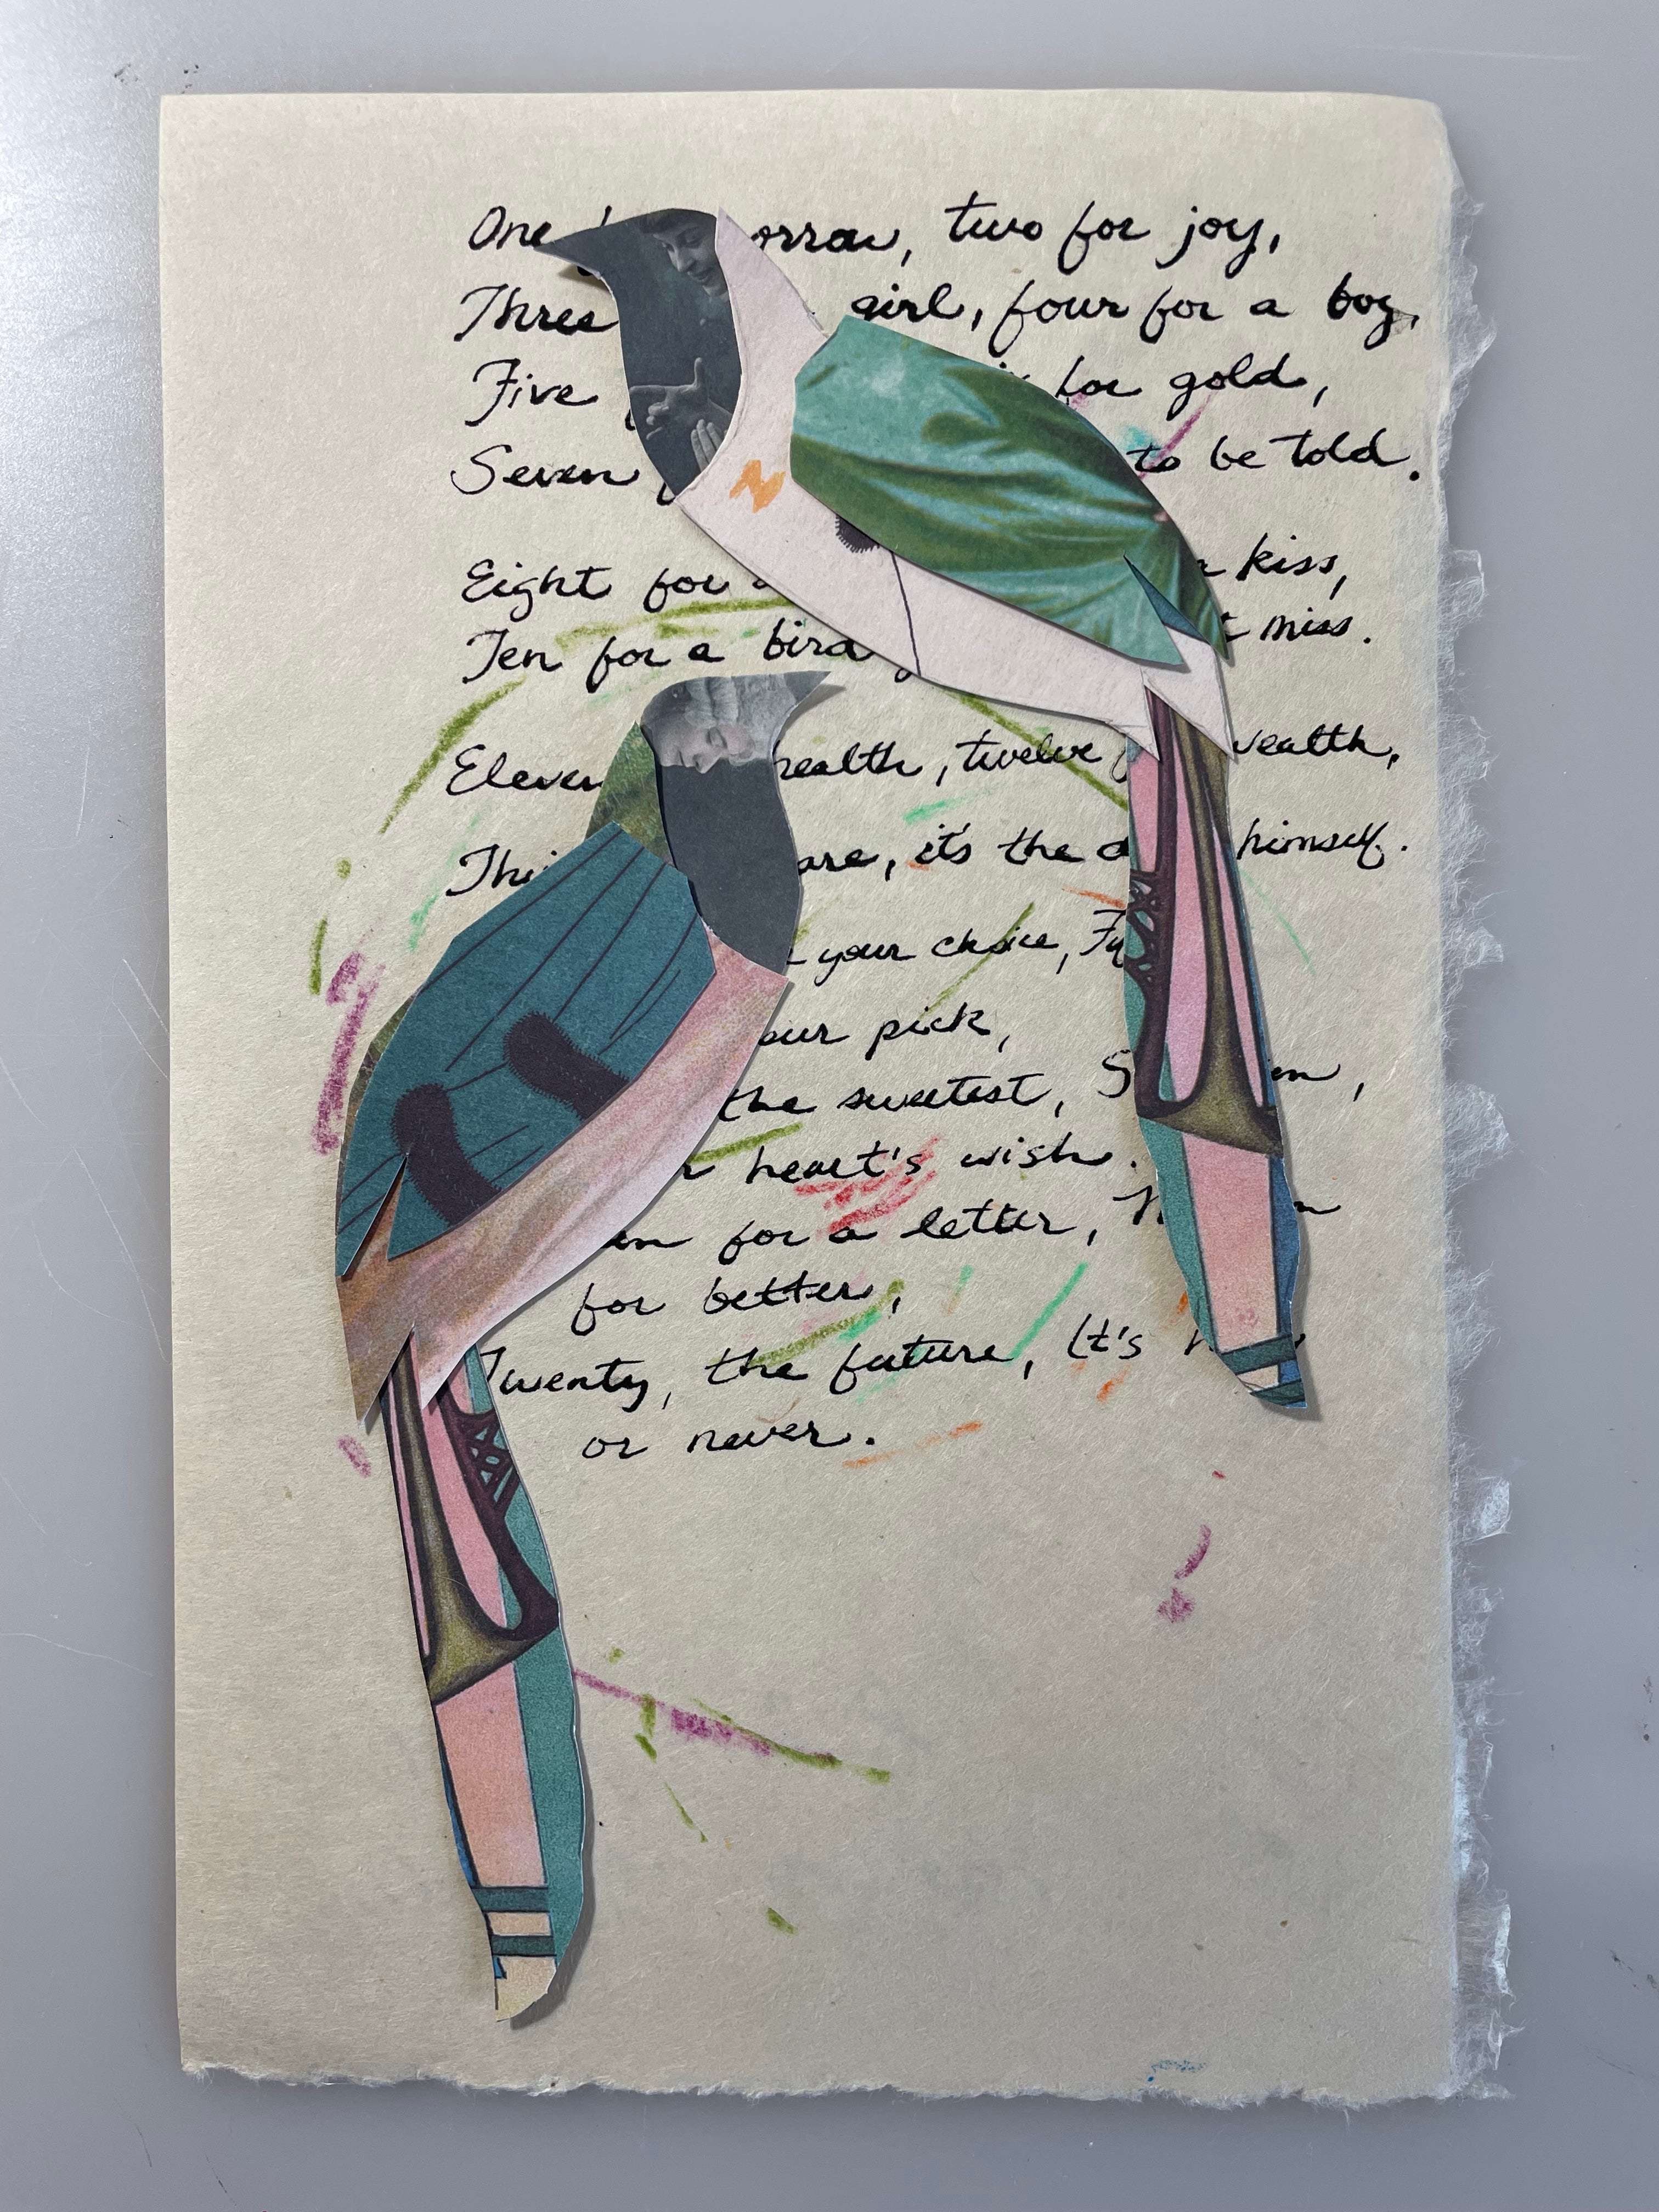 One orrow, two for joy,
Three girl, four for a boy,
Five for gold,
Seven to be told.
Eight for a kiss,
Ten for a bird miss.
Eleven health, twelve wealth,
are, it's the himself.
your choice,
our pick,
the sweetest,
heart's wish.
for a letter,
for better,
Twenty, the future, It's
or never.